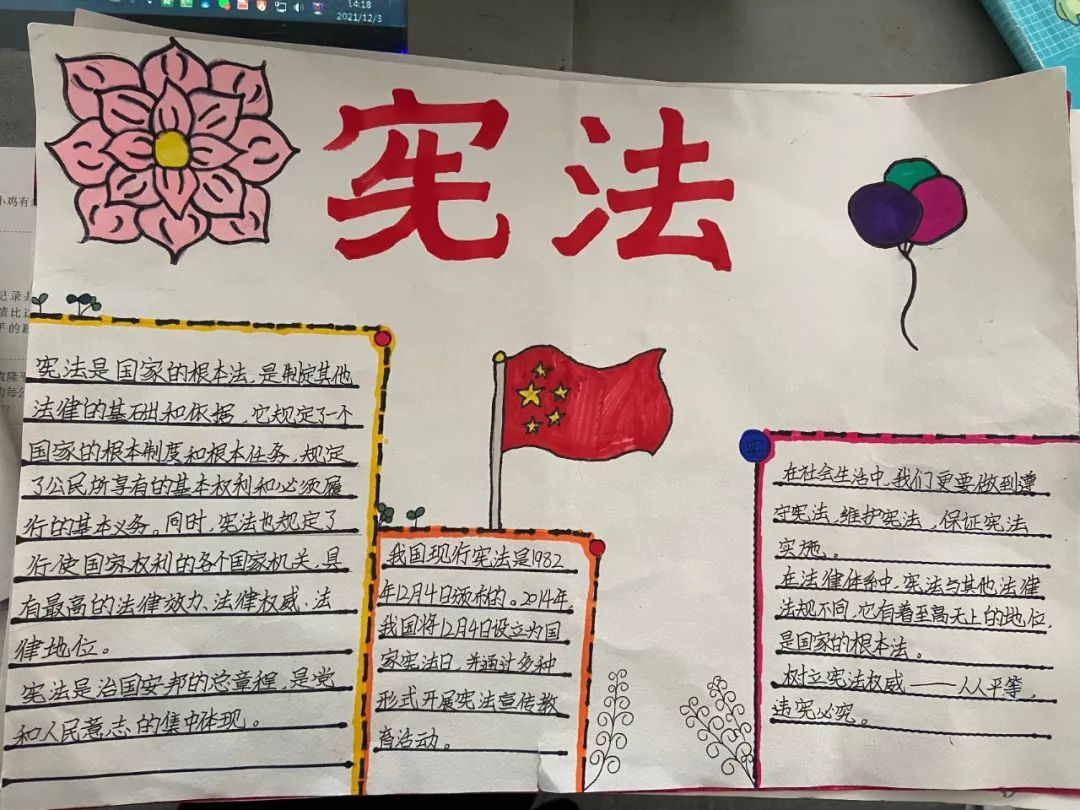 14:18
2021/12/3
宪法
宪法是国家的根本法,是制定其他
法律的基础和依据,它规定了一个
国家的根本制度和根本任务,规定
了公民所享有的基本权利和必须履
行的基本义务。同时,宪法也规定了
行使国家权利的各个国家机关,具
有最高的法律效力、法律权威、法
律地位。
宪法是治国安邦的总章程,是党
和人民意志的集中体现。
我国现行宪法是1982
年12月4日颁布的。2014年
我国将12月4日设立为国
家宪法日,并通过多种
形式开展宪法宣传教
育活动。
在社会生活中,我们更要做到遵
守宪法,维护宪法,保证宪法
实施。
在法律体系中,宪法与其他法律
法规不同,它有着至高无上的地位,
是国家的根本法。
树立宪法权威——人人平等,
违宪必究。
小鸡有